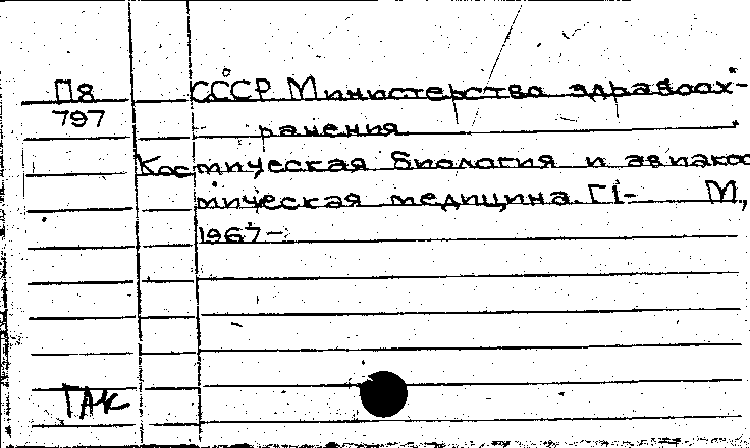 П8 СССР Министерство здравоох-
797 ранения
Космическая биология и авиакос
мическая медицина. Г1- М,
1967-
ГАК